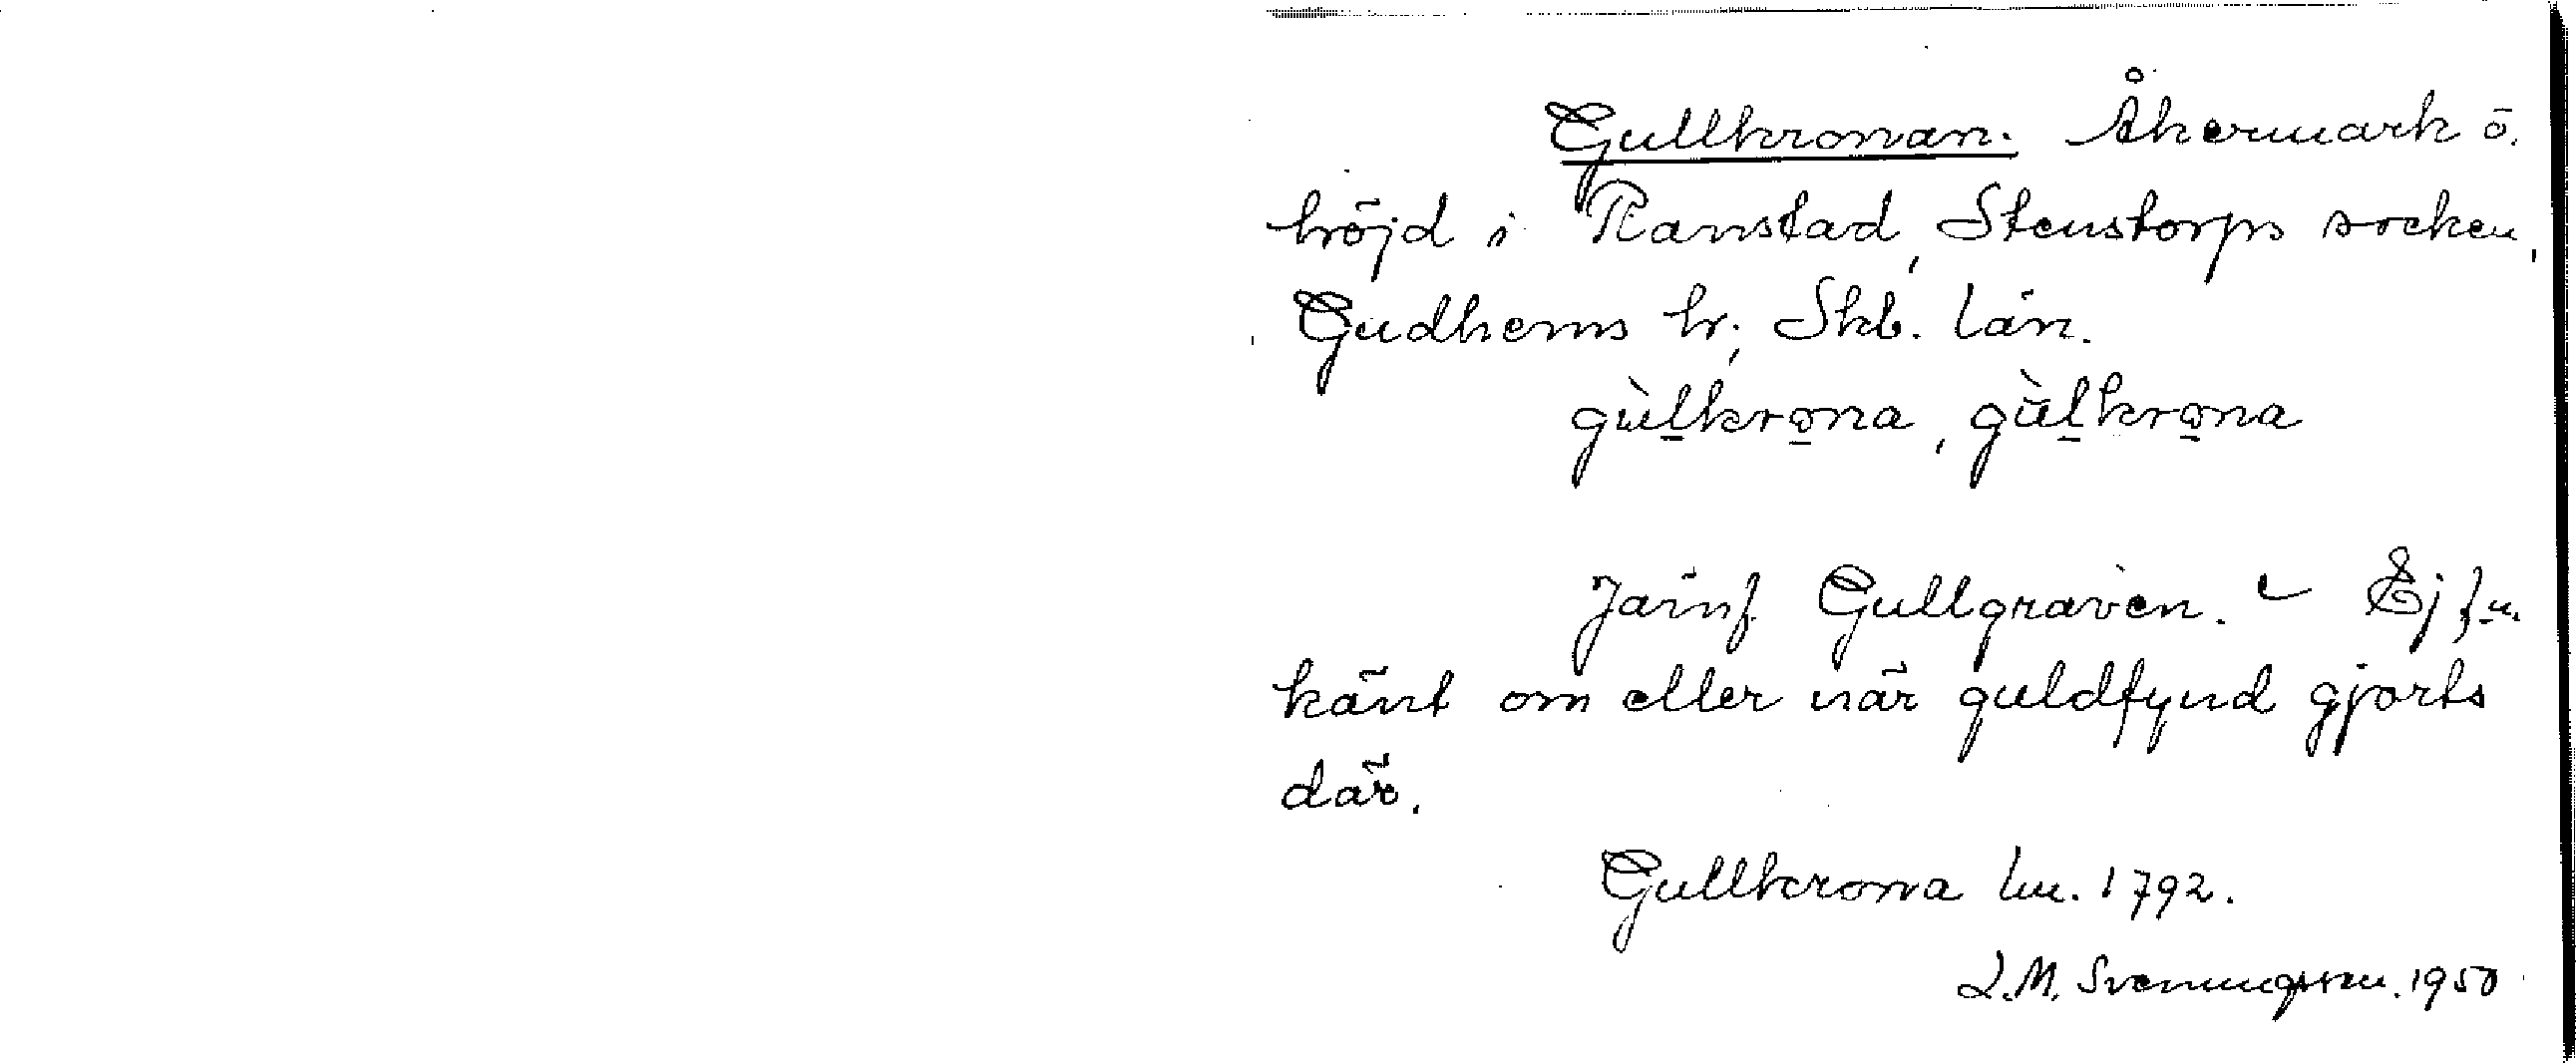 Gullkronan. Åkermark ö.
höjd i Ranstad, Stenstorps socken,
Gudhems hr., Skb. län.
gùl̠kro̠na, gùl̠kro̠na
Jämf. Gullgraven. Ej f.n.
känt om eller när guldfynd gjorts
där.
Gullkrona lm. 1792.
L.M. Svenungsson. 1950